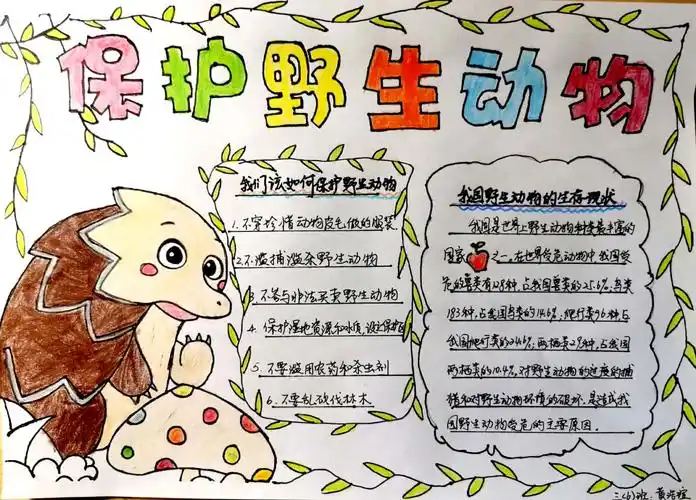 保护野生动物
我们该如何保护野生动物
1.不穿珍惜动物皮毛做的服装.
2.不滥捕滥杀野生动物
3.不参与非法买卖野生动物
4.保护湿地资源和水质,设立保护区
5.不要滥用农药和杀虫剂
6.不要乱砍伐林木
我国野生动物的生存现状
我国是世界上野生动物种类最丰富的
国家之一.在世界危急动物中,我国受
危的兽类有128种,占我国兽类的25.6%,鸟类
183种,占我国鸟类的14.6%,爬行类96种,占
我国爬行类的24.6%,两栖类29种,占我国
两栖类的10.4%.对野生动物的过度的捕
猎和对野生动物环境的破坏,是造成我
国野生动物受危的主要原因.
三(6)班 黄